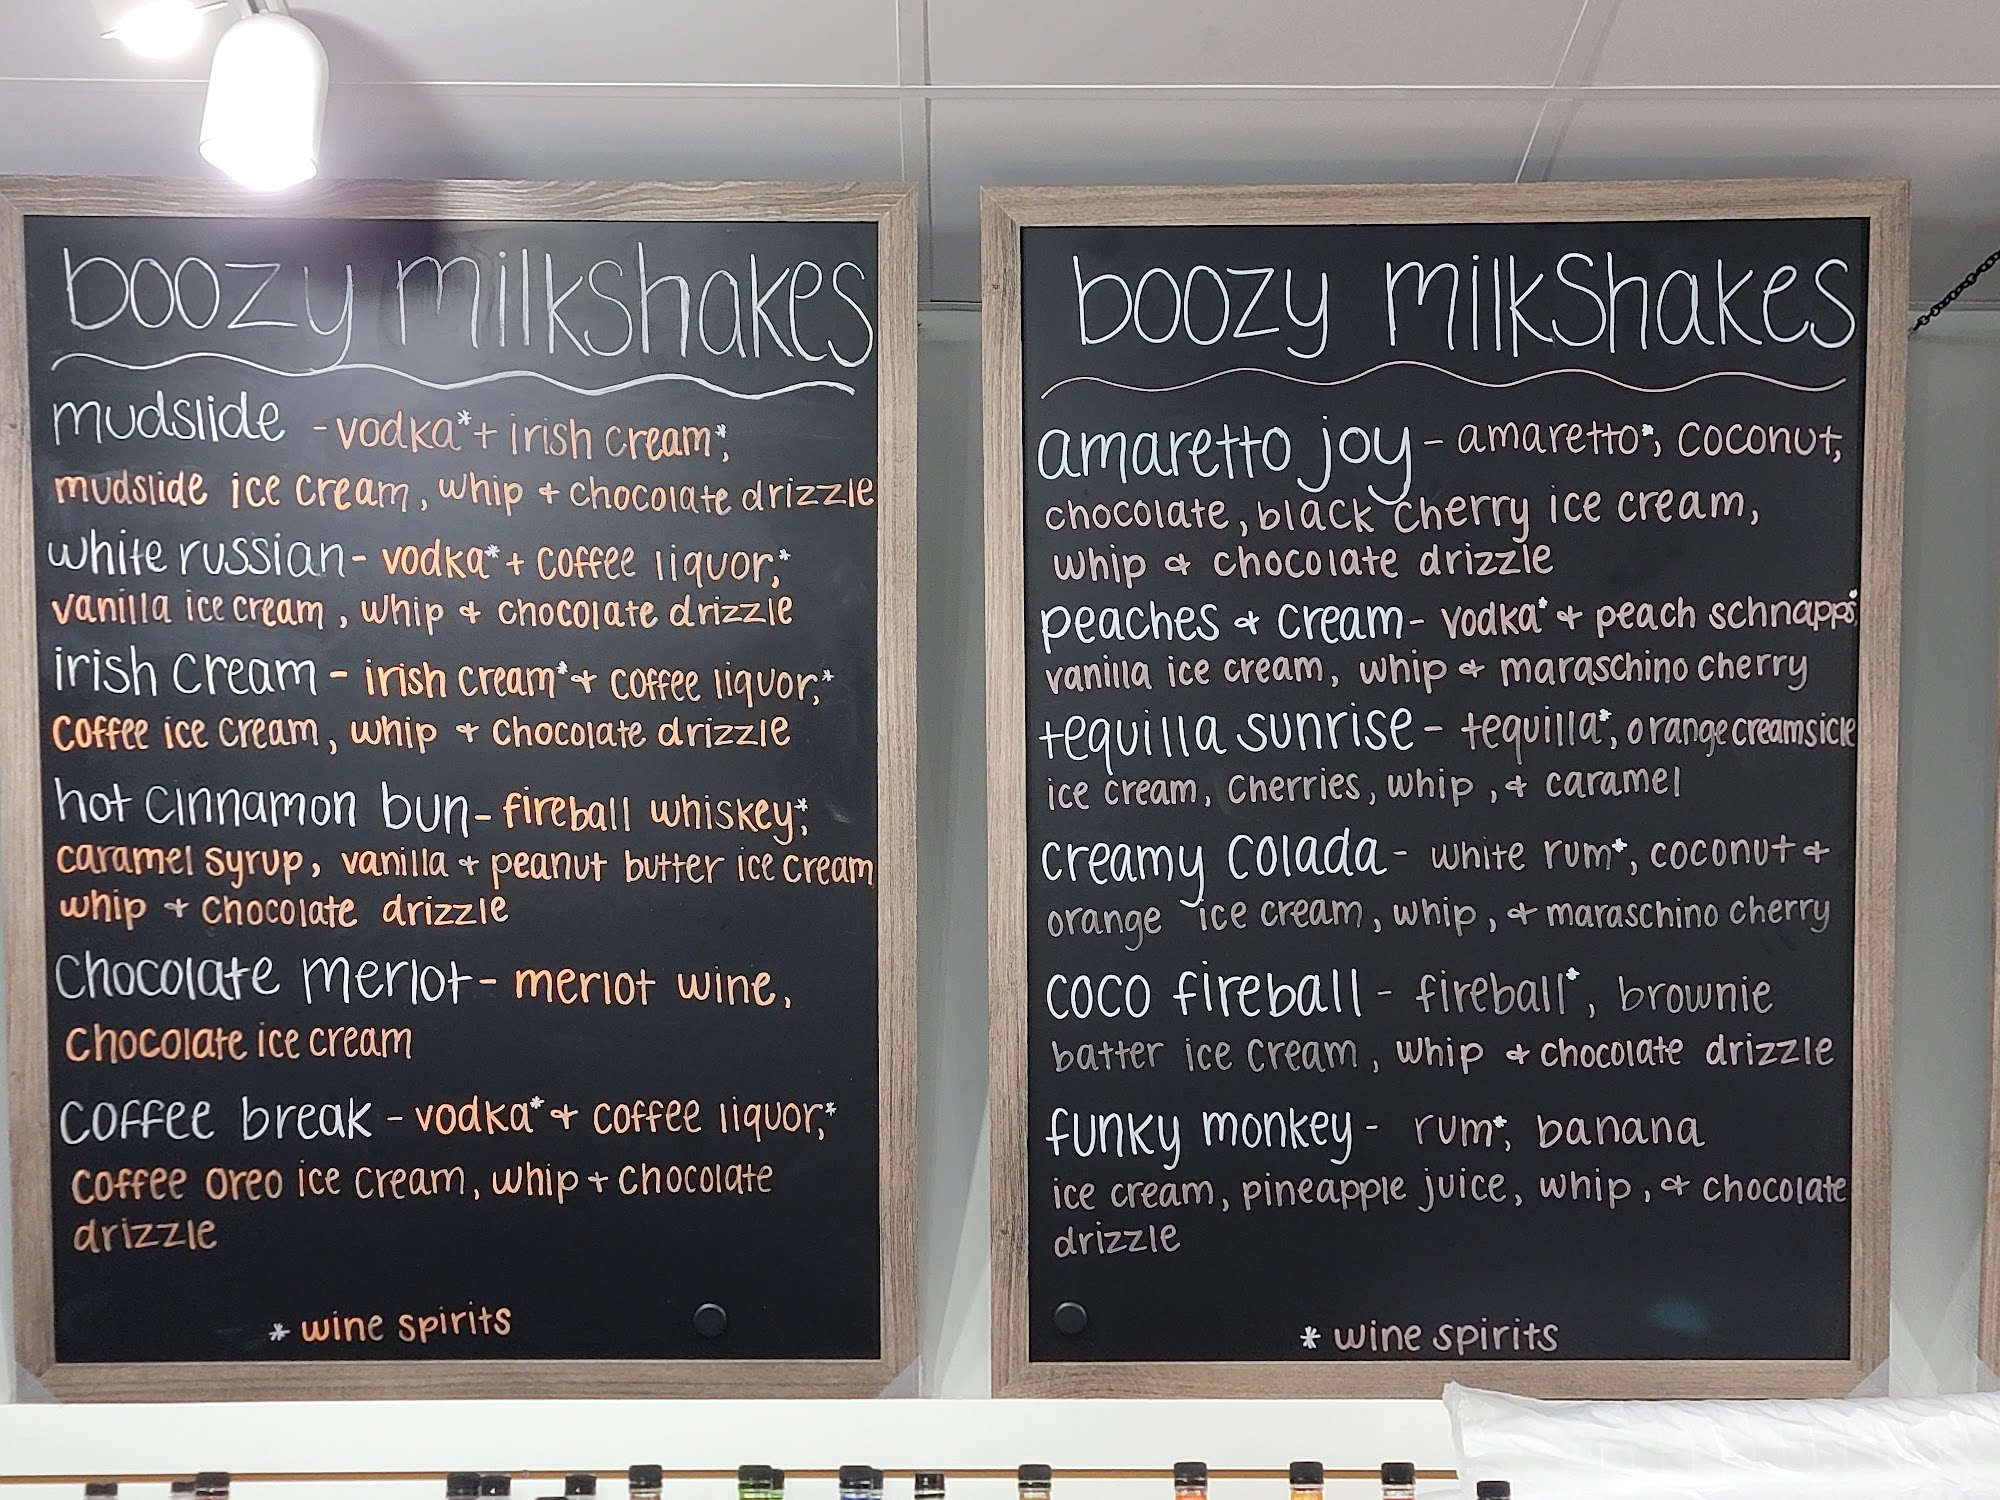 boozy milkshakes
mudslide - vodka* + irish cream*,
mudslide ice cream, whip + chocolate drizzle
white russian - vodka* + coffee liquor,*
vanilla ice cream, whip + chocolate drizzle
irish cream - irish cream* + coffee liquor,*
coffee ice cream, whip + chocolate drizzle
hot cinnamon bun - fireball whiskey*,
caramel syrup, vanilla + peanut butter ice cream
whip + chocolate drizzle
chocolate merlot - merlot wine,
chocolate ice cream
coffee break - vodka* + coffee liquor,*
coffee oreo ice cream, whip + chocolate
drizzle
* wine spirits
boozy milkshakes
amaretto joy - amaretto*, coconut,
chocolate, black cherry ice cream,
whip + chocolate drizzle
peaches + cream - vodka* + peach schnapps*,
vanilla ice cream, whip + maraschino cherry
tequilla sunrise - tequilla*, orange creamsicle
ice cream, cherries, whip, + caramel
creamy colada - white rum*, coconut +
orange ice cream, whip, + maraschino cherry
coco fireball - fireball*, brownie
batter ice cream, whip + chocolate drizzle
funky monkey - rum*, banana
ice cream, pineapple juice, whip, + chocolate
drizzle
* wine spirits